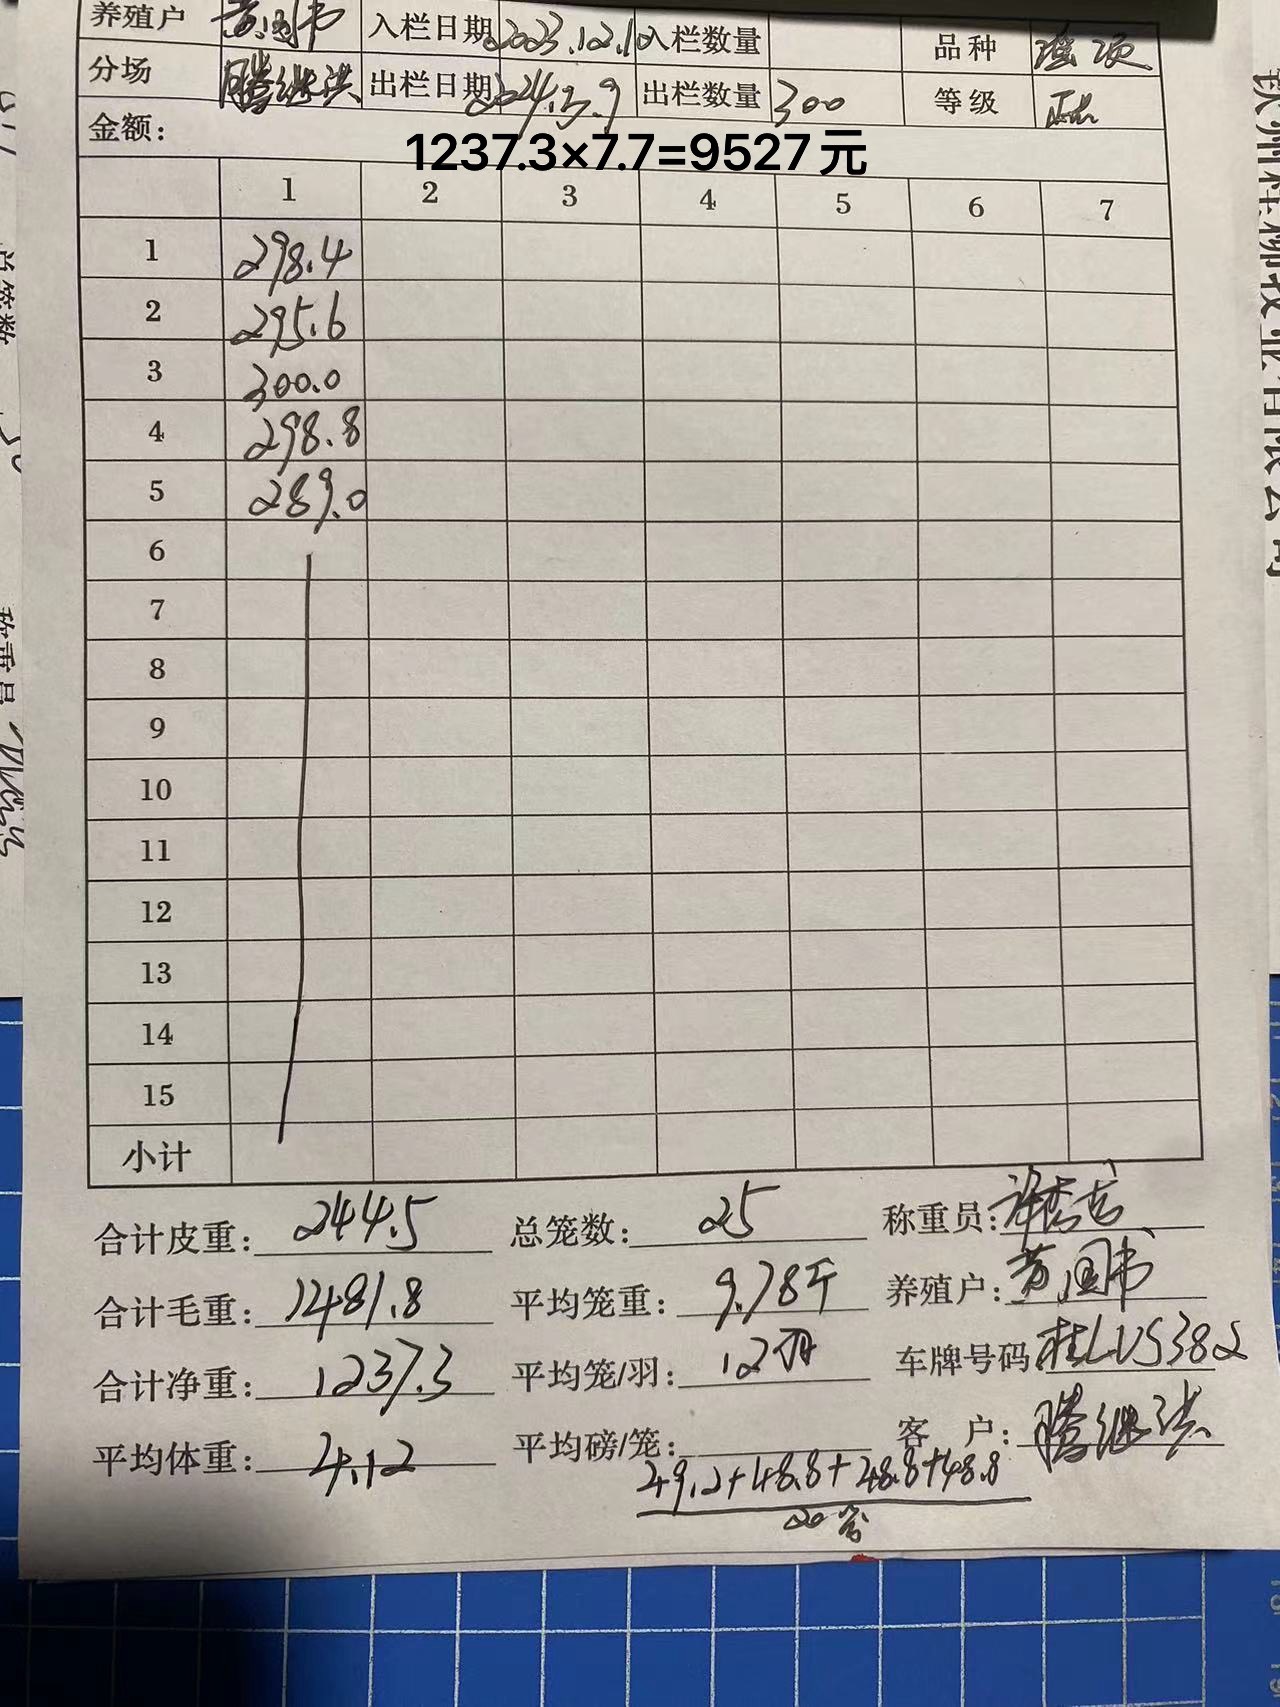 养殖户 黄国书 入栏日期 2023.12.10 入栏数量 品种
分场 腾继洪 出栏日期 2024.3.9 出栏数量 300 等级 正
金额：
1237.3×7.7=9527元
1 2 3 4 5 6 7
1 298.4
2 295.6
3 300.0
4 298.8
5 289.0
6
7
8
9
10
11
12
13
14
15
小计
合计皮重：244.5 总笼数：25 称重员：
合计毛重：1481.8 平均笼重：9.78斤 养殖户：黄国书
合计净重：1237.3 平均笼/羽：12羽 车牌号码：桂LVS382
平均体重：4.12 平均磅/笼： 客 户：腾继洪
49.2+48.8+48.8+48.8
20
总笼数
称重员